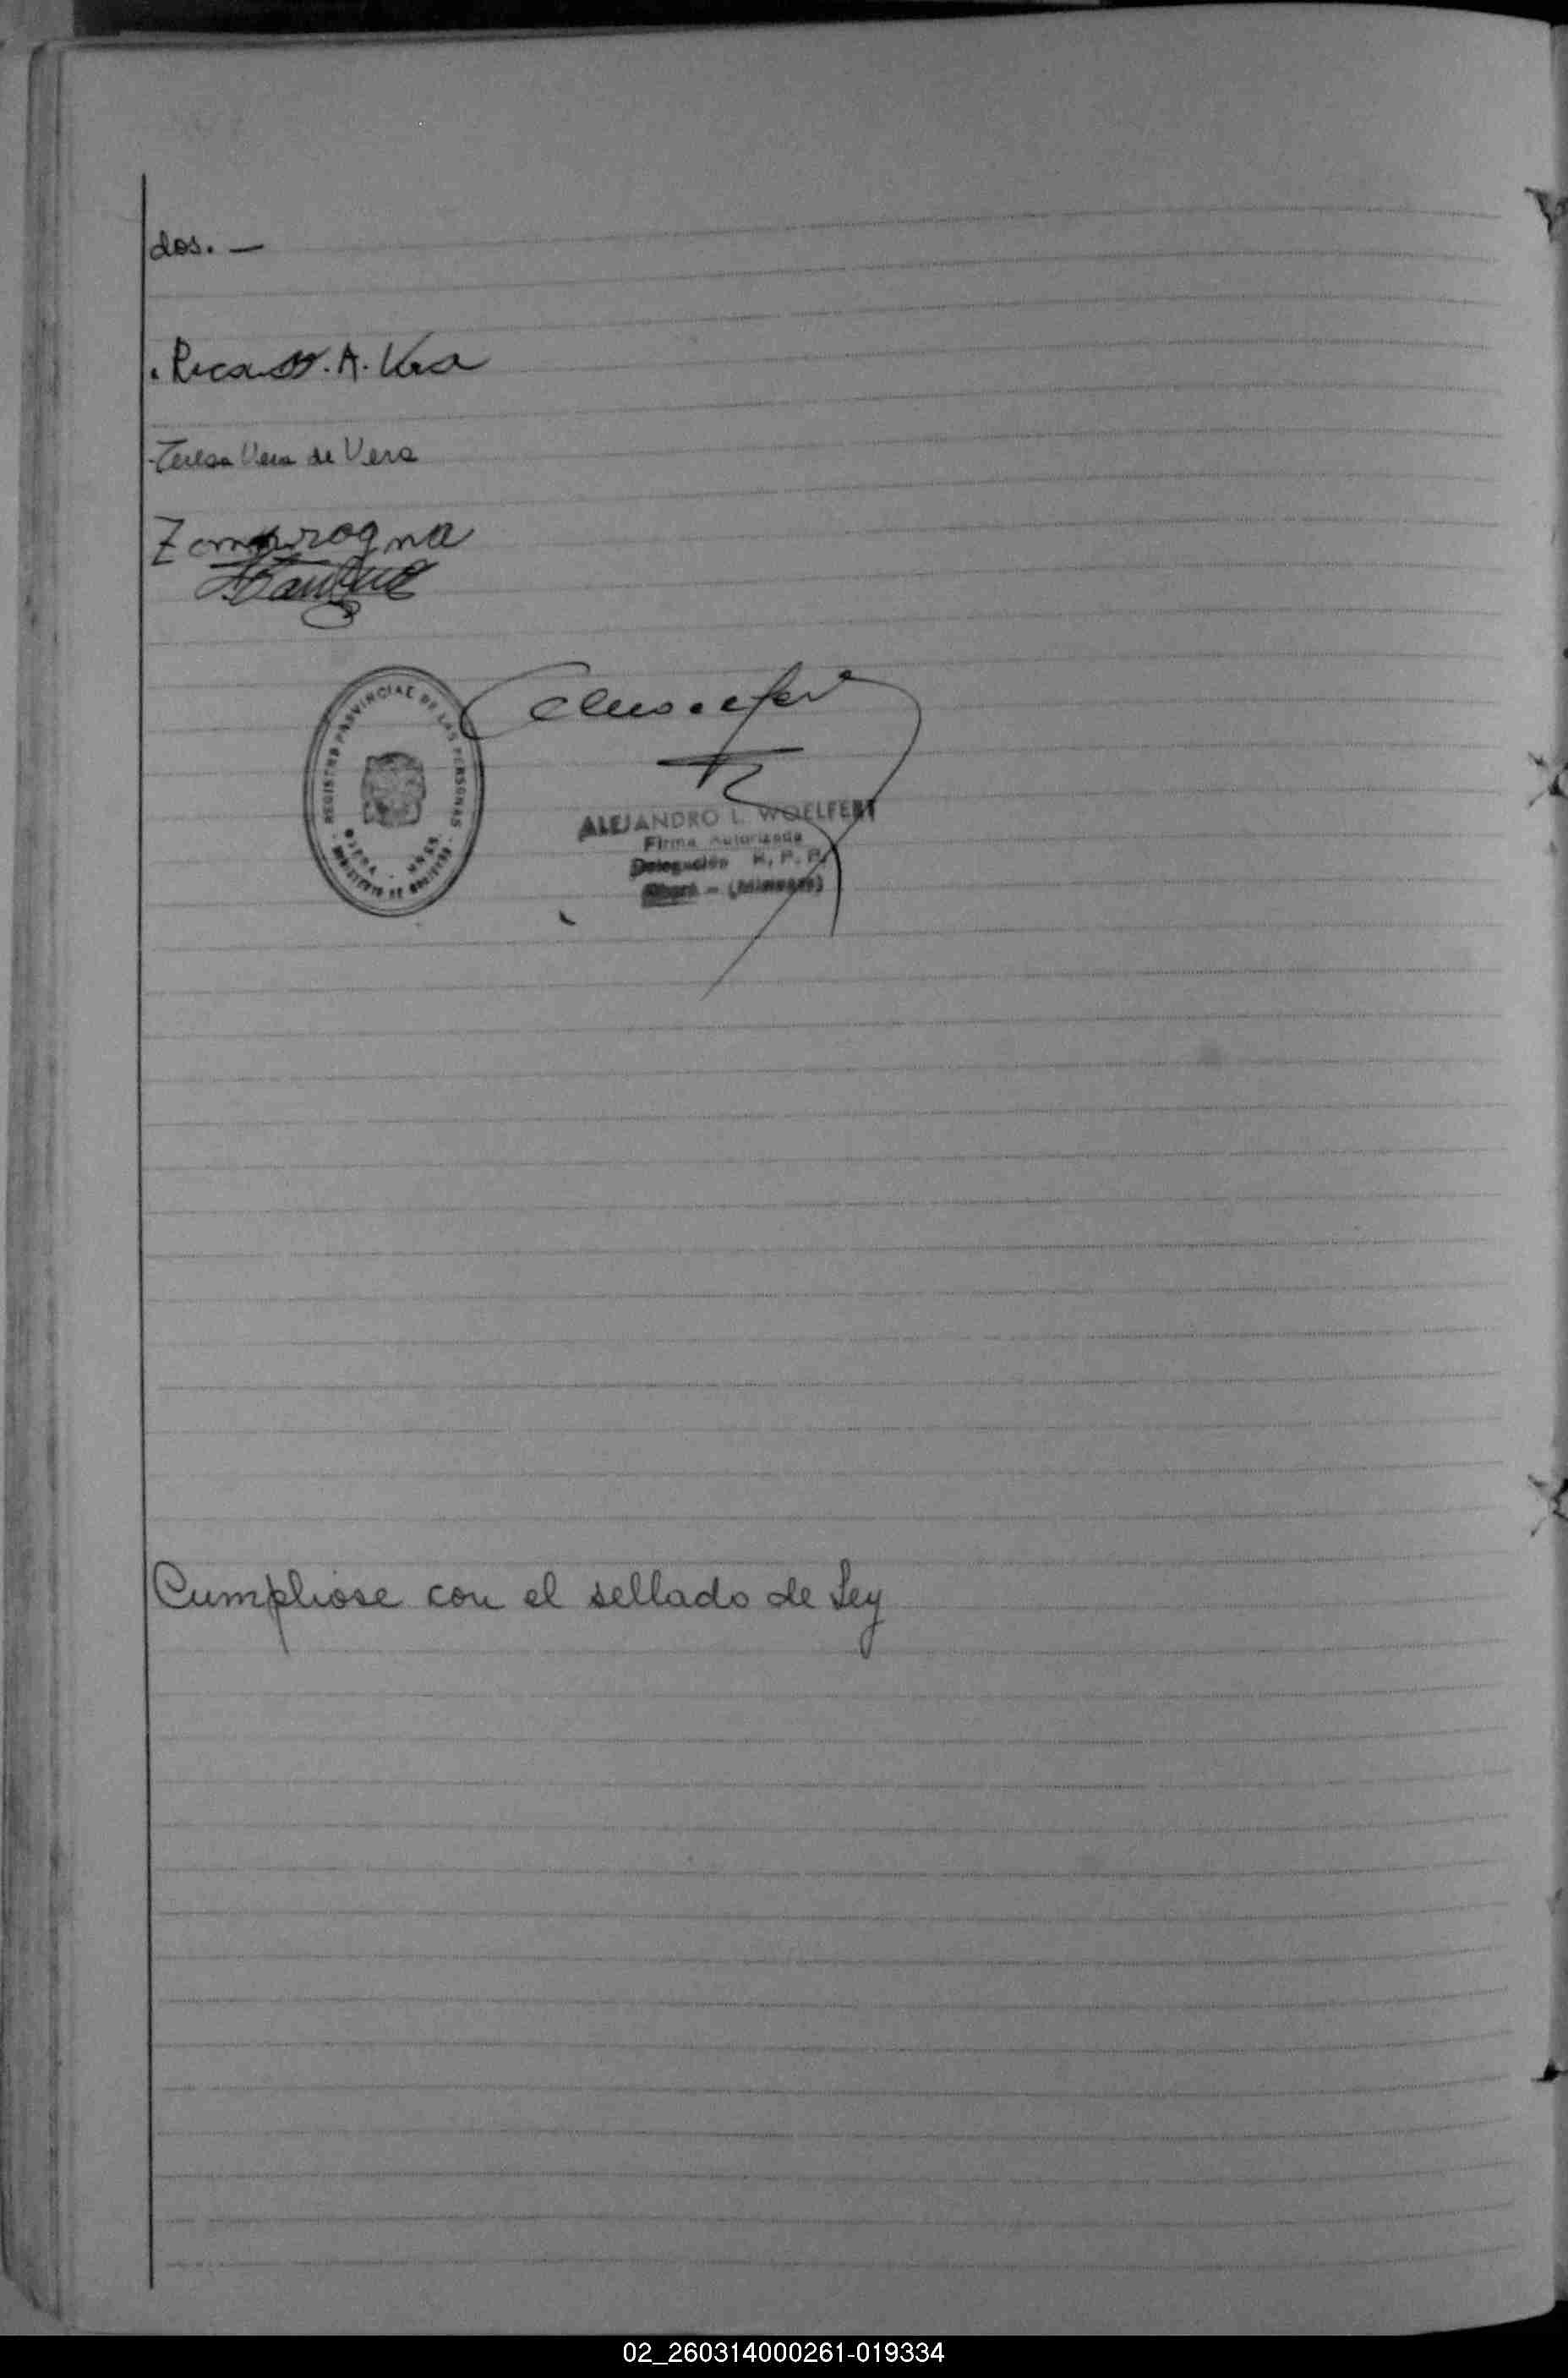 dos. —
. Ricardo. A. Vera
Teresa Vera de Vera
Zamparogna
REGISTRO PROVINCIAL DE LAS PERSONAS
OBERA - MNES.
MINISTERIO DE GOBIERNO
ALEJANDRO L. WOELFERT
Firma Autorizada
Delegación R. P. P.
Oberá - (Misiones)
Cumpliose con el sellado de Ley
02_260314000261-019334